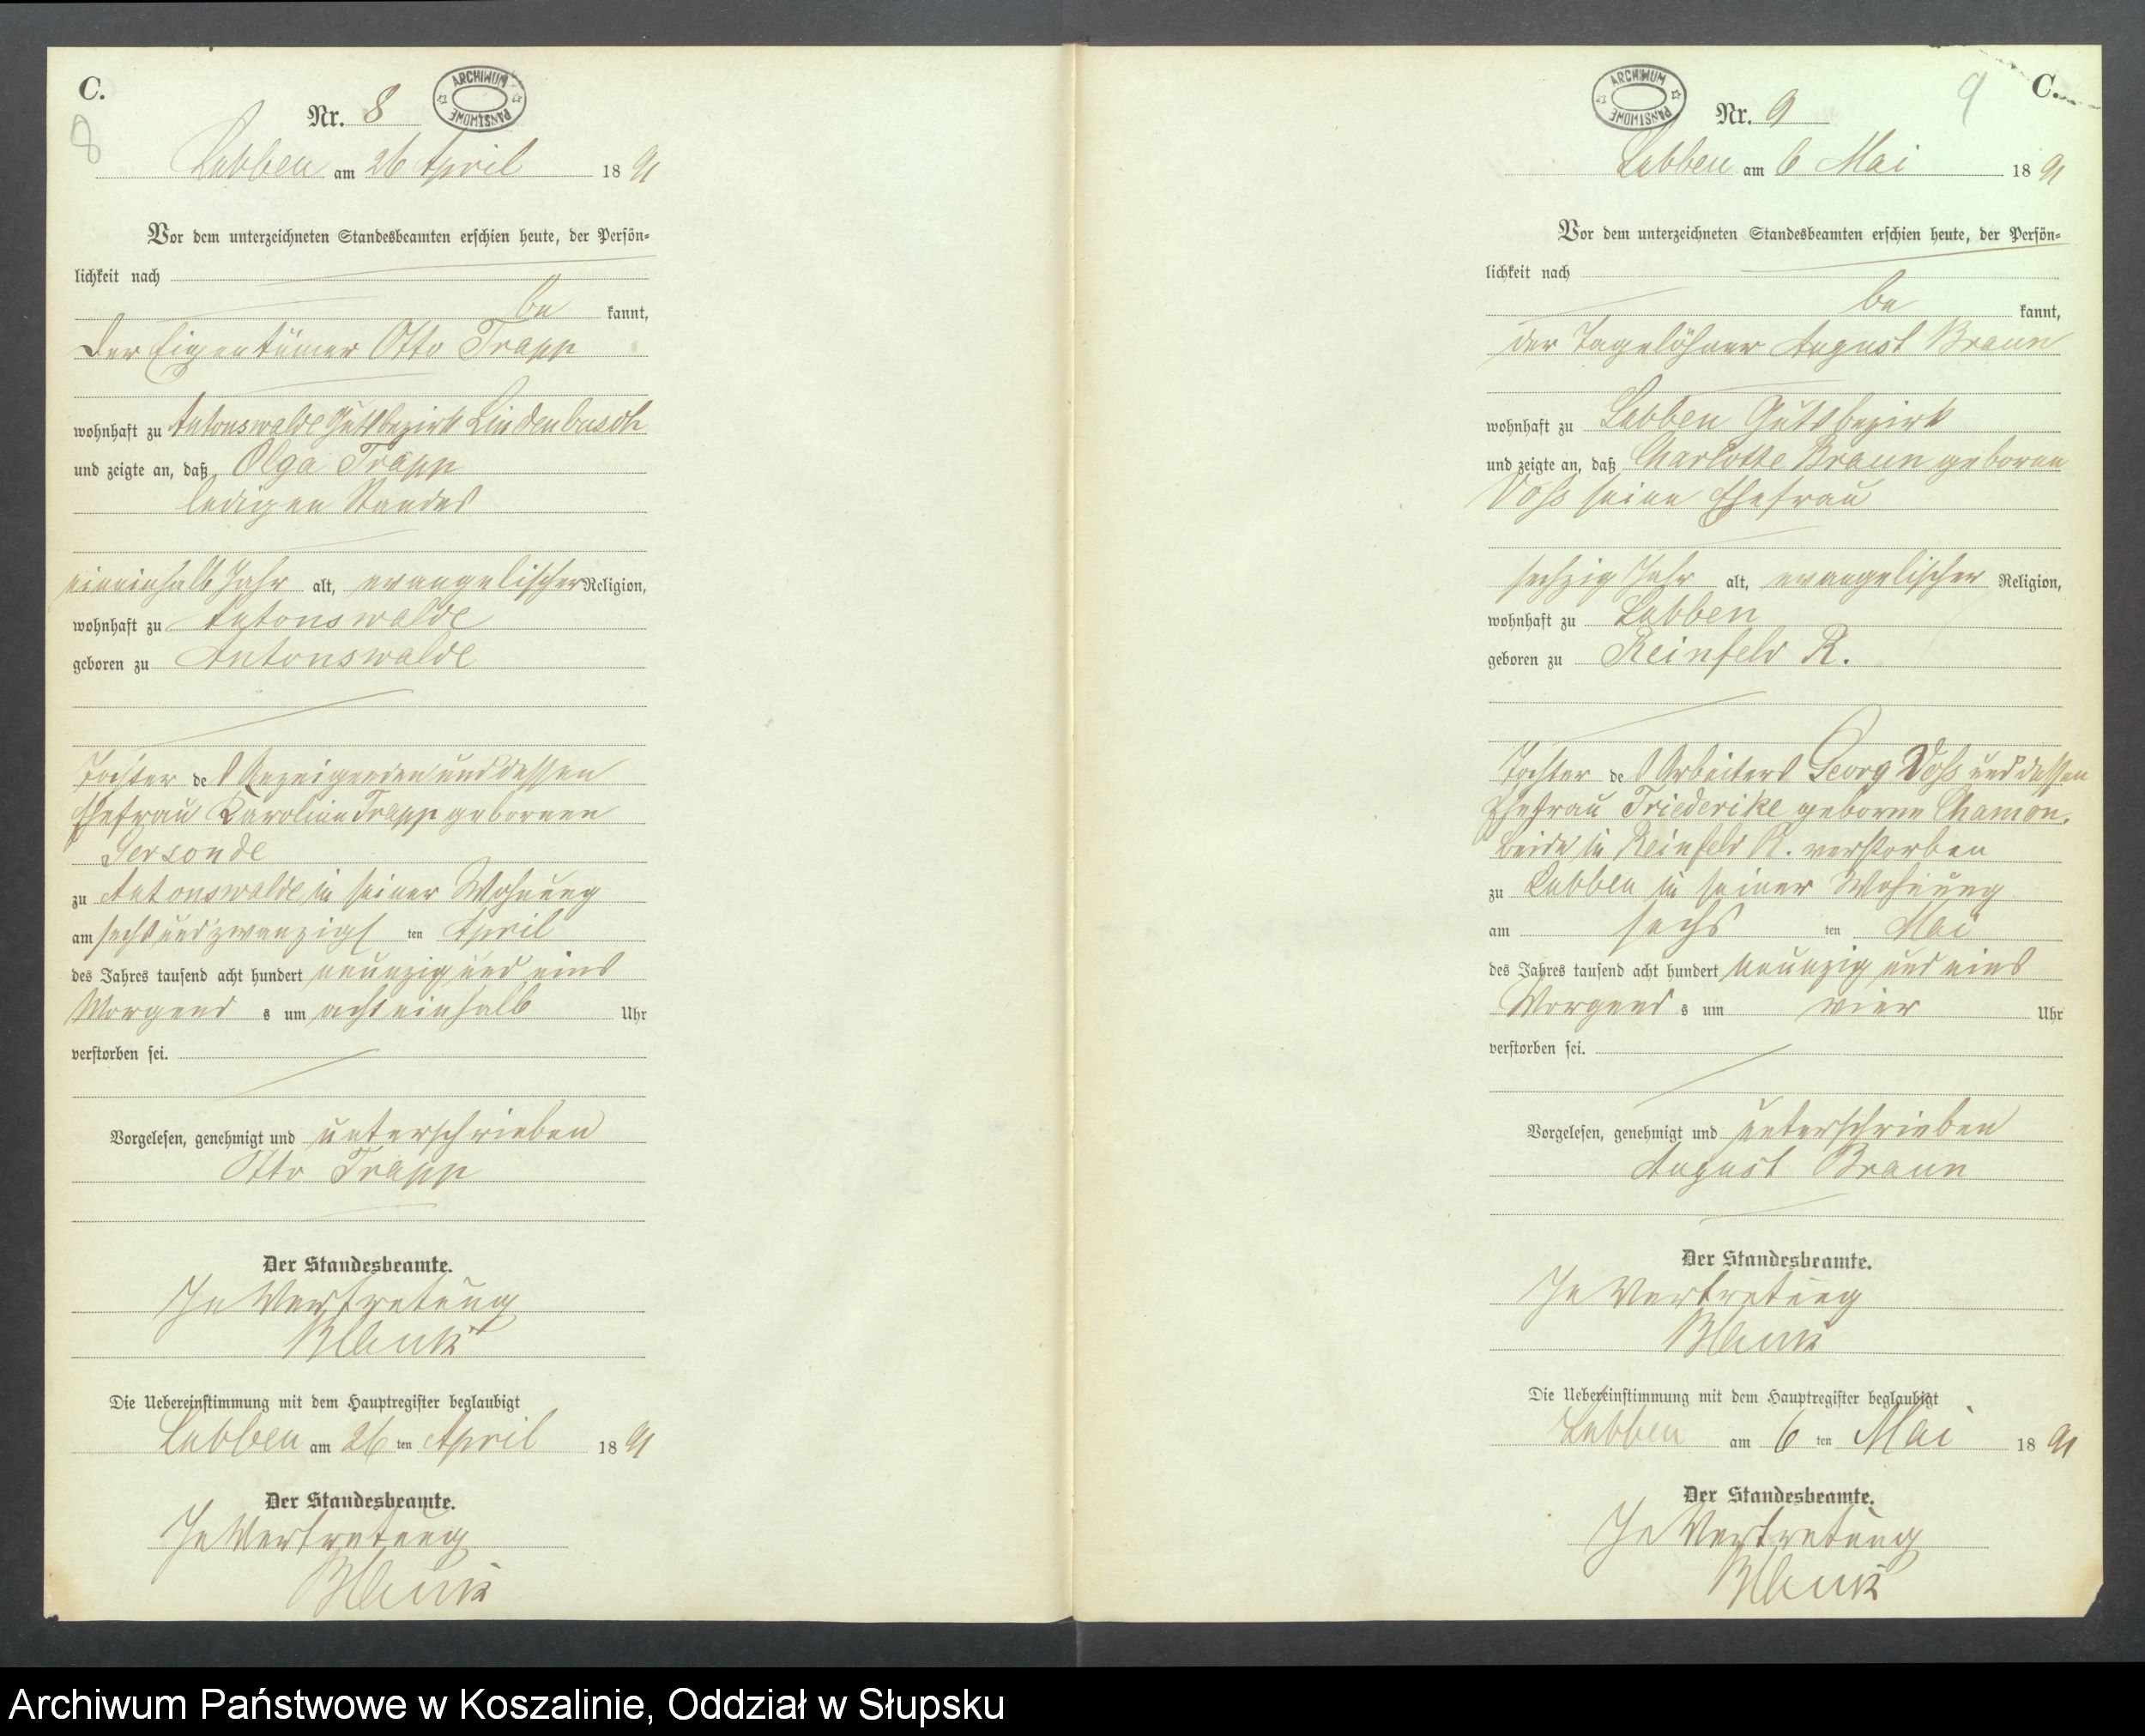 C.
8
Nr. 8
ARCHIWUM PAŃSTWOWE
Labben am 26 April 1891
Vor dem unterzeichneten Standesbeamten erschien heute, der Persön-
lichkeit nach
be kannt,
der Eigentümer Otto Trapp
wohnhaft zu Antonswalde Gutsbezirk Lindenbusch
und zeigte an, daß Olga Trapp
ledigen Standes
eineinhalb Jahr alt, evangelischer Religion,
wohnhaft zu Antonswalde
geboren zu Antonswalde
Tochter des Anzeigenden und dessen
Ehefrau Karoline Trapp gebornen
Gersonde
zu Antonswalde in seiner Wohnung
am sechsundzwanzigsten April
des Jahres tausend acht hundert neunzig und eins
Morgens um achteinhalb Uhr
verstorben sei.
Vorgelesen, genehmigt und unterschrieben
Otto Trapp
Der Standesbeamte.
In Vertretung
Blank
Die Uebereinstimmung mit dem Hauptregister beglaubigt
Labben am 26 ten April 1891
Der Standesbeamte.
In Vertretung
Blank
C.
9
Nr. 9
ARCHIWUM PAŃSTWOWE
Labben am 6 Mai 1891
Vor dem unterzeichneten Standesbeamten erschien heute, der Persön-
lichkeit nach
be kannt,
der Tagelöhner August Braun
wohnhaft zu Labben Gutsbezirk
und zeigte an, daß Charlotte Braun geboren
Voß seine Ehefrau
sechzig Jahr alt, evangelischer Religion,
wohnhaft zu Labben
geboren zu Reinfeld R.
Tochter des Arbeiters Georg Voß und dessen
Ehefrau Friederike geborne Chamon.
beide in Reinfeld R. verstorben
zu Labben in seiner Wohnung
am sechs ten Mai
des Jahres tausend acht hundert neunzig und eins
Morgens um vier Uhr
verstorben sei.
Vorgelesen, genehmigt und unterschrieben
August Braun
Der Standesbeamte.
In Vertretung
Blank
Die Uebereinstimmung mit dem Hauptregister beglaubigt
Labben am 6 ten Mai 1891
Der Standesbeamte.
In Vertretung
Blank
Archiwum Państwowe w Koszalinie, Oddział w Słupsku